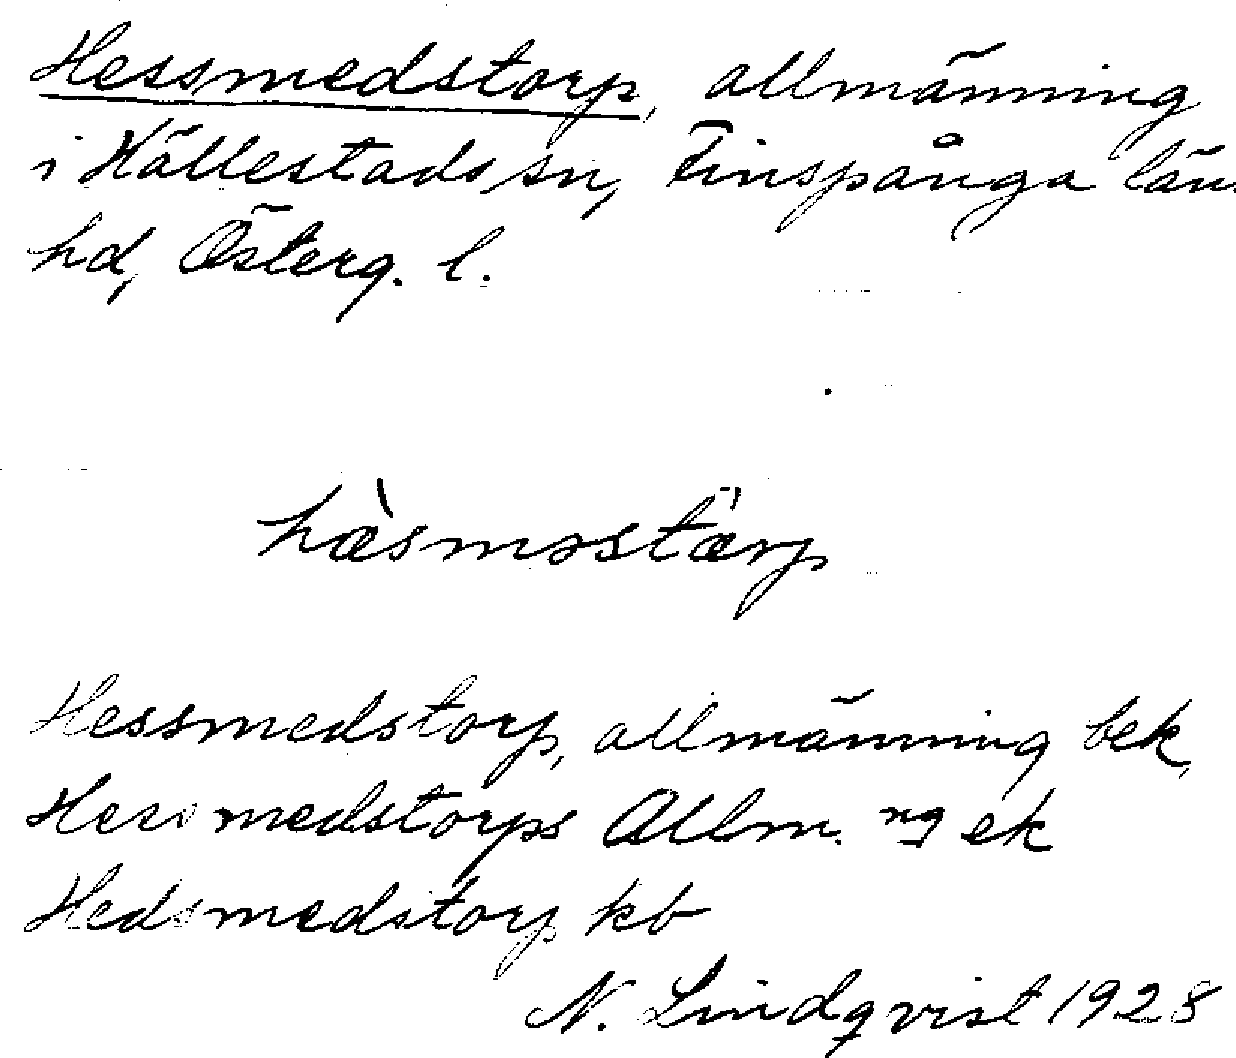 Hessmedstorp, allmänning
i Hällestads sn, Finspånga län.
hd, Österg. l.
hæ̀smɔstæ̀rp
Hessmedstorp, allmänning bek,
Hessmedstorps Allm. ng ek
Hedsmedstorp kb
N. Lindqvist 1928